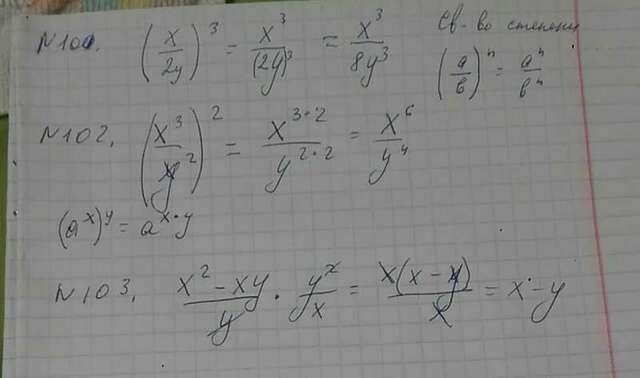 N101. (x/2y)^3 = x^3/(2y)^3 = x^3/8y^3
Св-во степени
(a/b)^n = a^n/b^n
N102. (x^3/y^2)^2 = x^(3·2)/y^(2·2) = x^6/y^4
(a^x)^y = a^(x·y)
N103. (x^2-xy)/y · y^2/x = x(x-y)/x = x-y